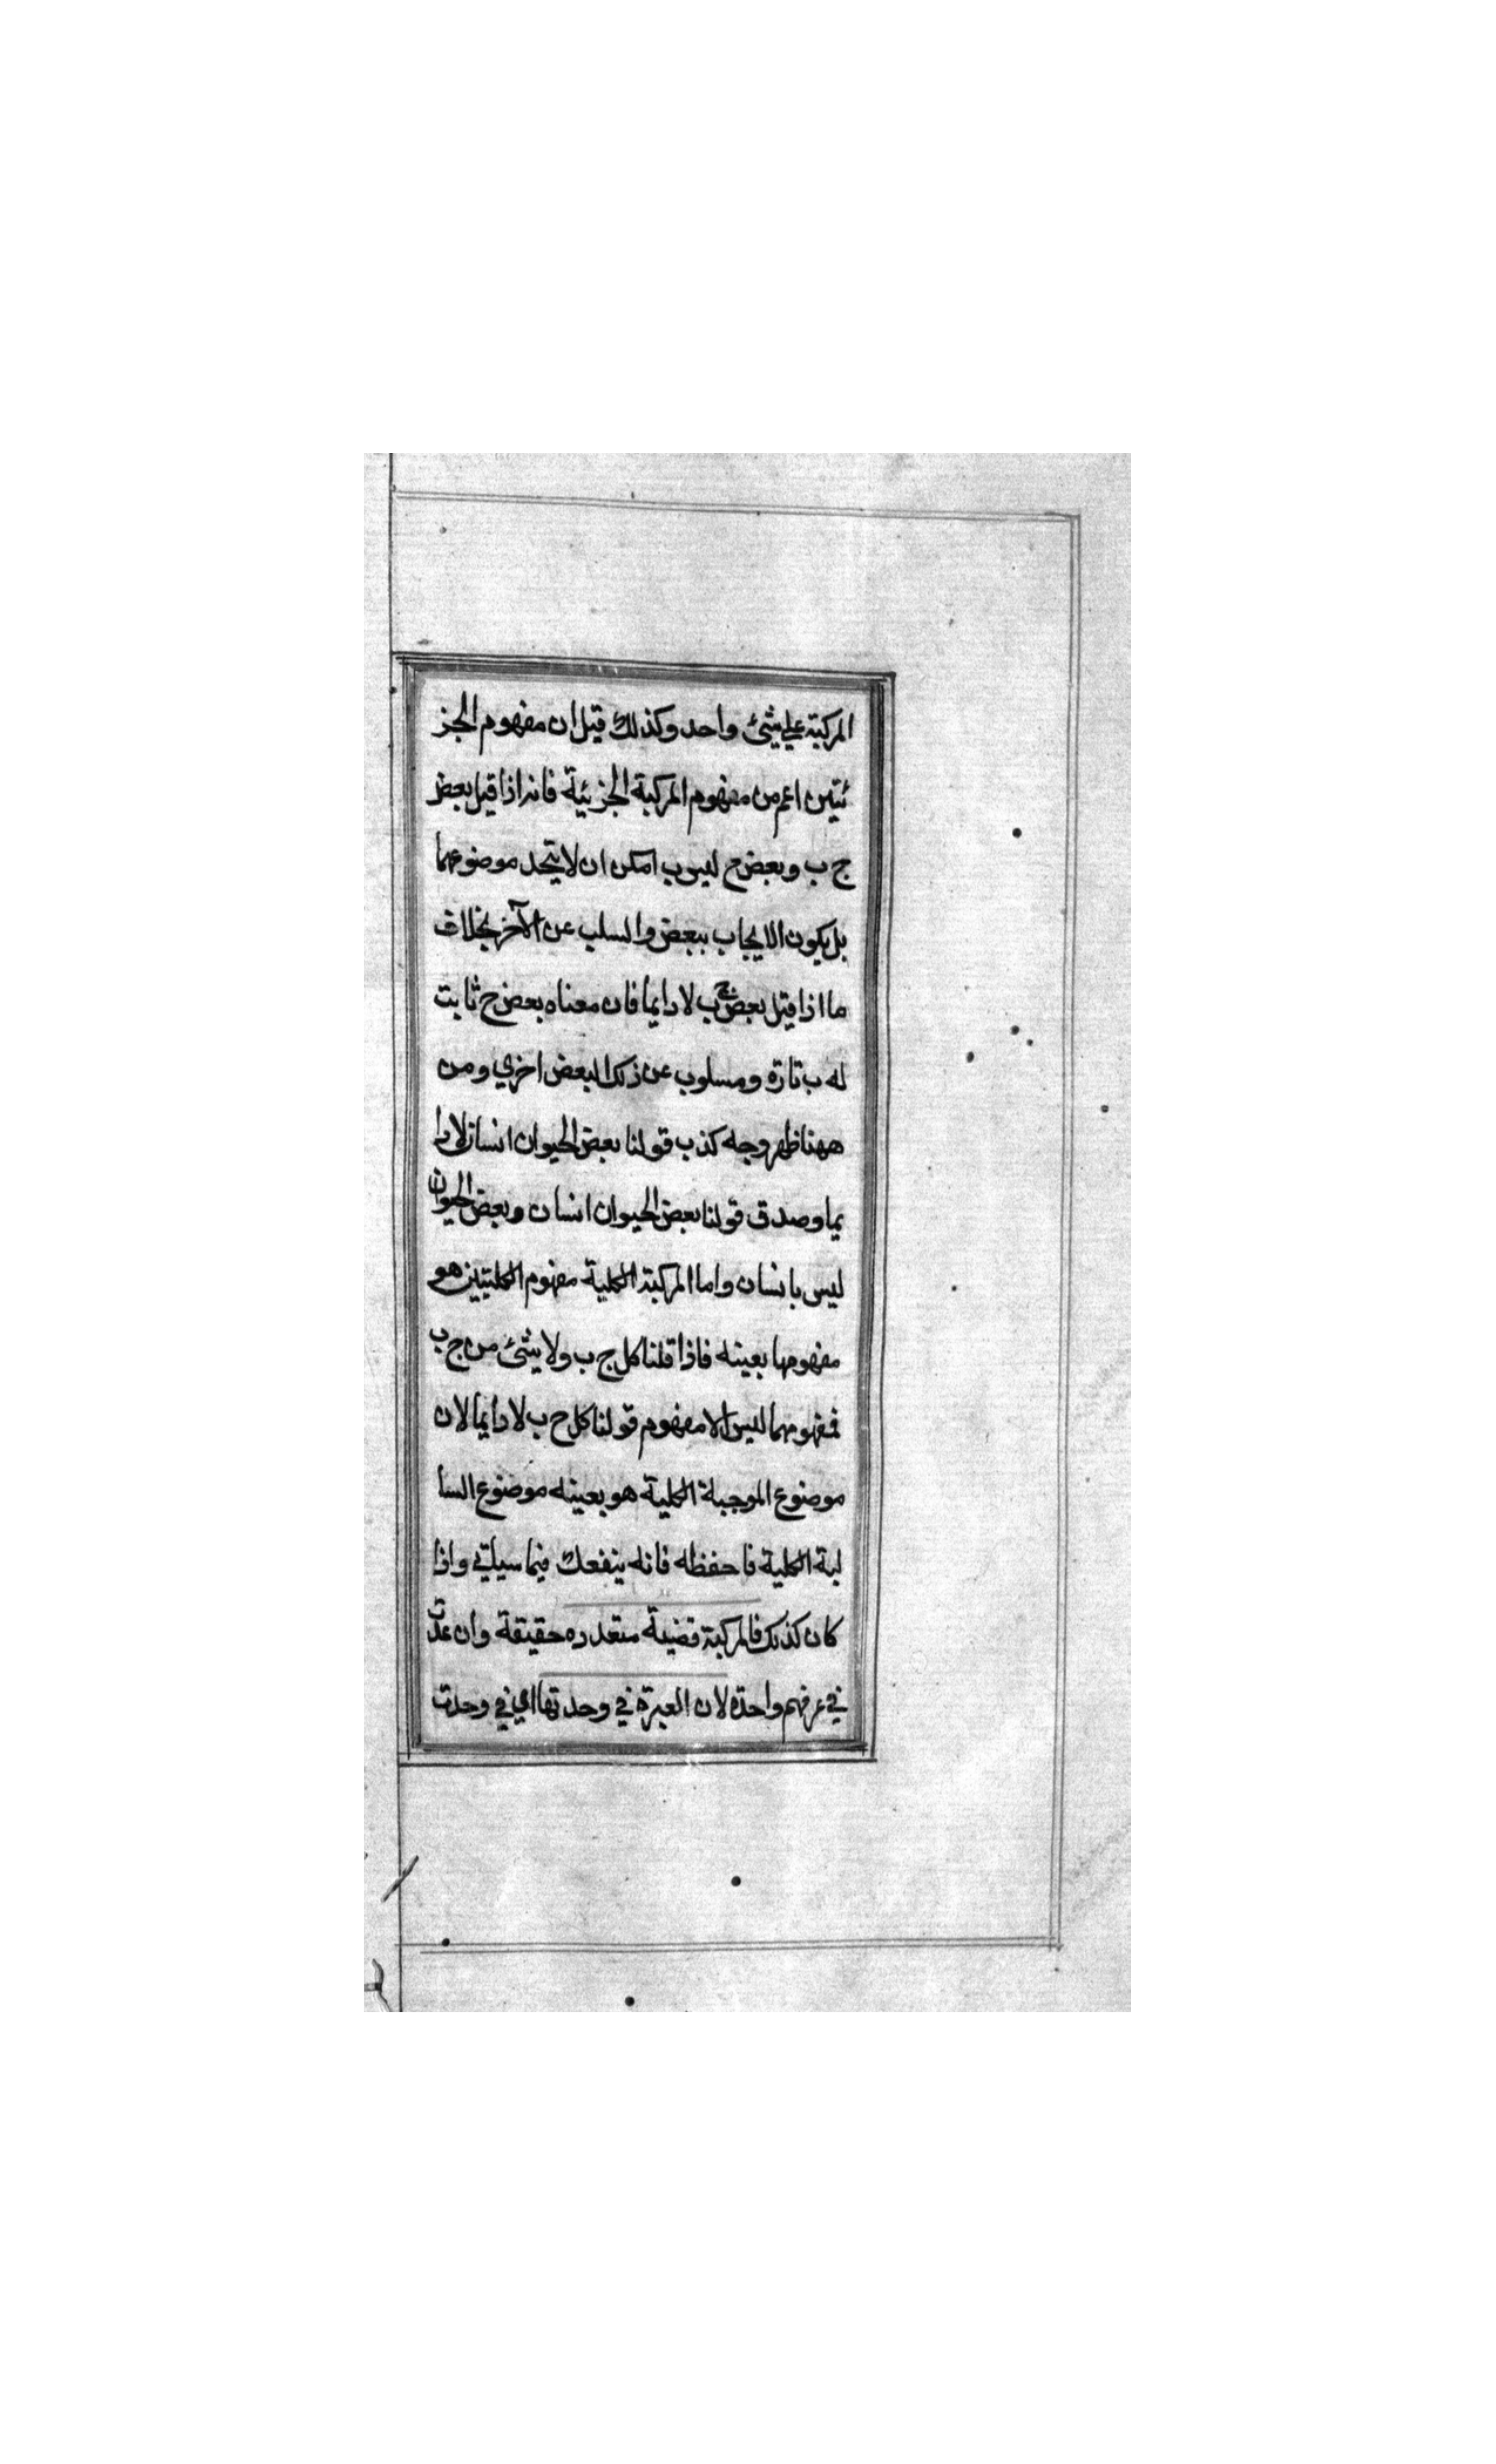 المركبة علي شئ واحد وكذلك قيل ان مفهوم الجز
ئتين اعم من مفهوم المركبة الجزئية فانه اذا قيل بعض
ج ب وبعض ج ليس ب امكن ان لا يتحد موضوعهما
بل يكون الايجاب ببعض والسلب عن الآخر بخلاف
ما اذا قيل بعض ج ب لا دايما فان معناه بعض ج ثابت
له ب تارة ومسلوب عن ذلك البعض اخري ومن
ههنا ظهر وجه كذب قولنا بعض الحيوان انسان لا دا
يما وصدق قولنا بعض الحيوان انسان وبعض الحيوان
ليس بانسان واما المركبة الكلية مفهوم الكليتين هو
مفهومها بعينه فاذا قلنا كل ج ب ولا شئ من ج ب
فمفهومهما ليس الا مفهوم قولنا كل ج ب لا دايما لان
موضوع الموجبة الكلية هو بعينه موضوع السا
لبة الكلية فاحفظه فانه ينفعك فيما سياتي واذا
كان كذلك فالمركبة قضية متعدده حقيقة وان عدت
في عرفهم واحدة لان العبرة في وحدتها اي في وحدت